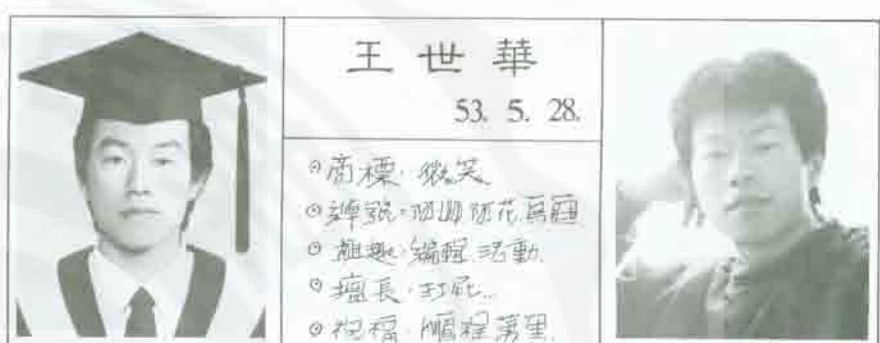 王世華
53. 5. 28.
⊙商標·微笑
⊙綽號·阿
⊙興趣·編輯 活動
⊙擅長·打屁..
⊙祝福·鵬程萬里.